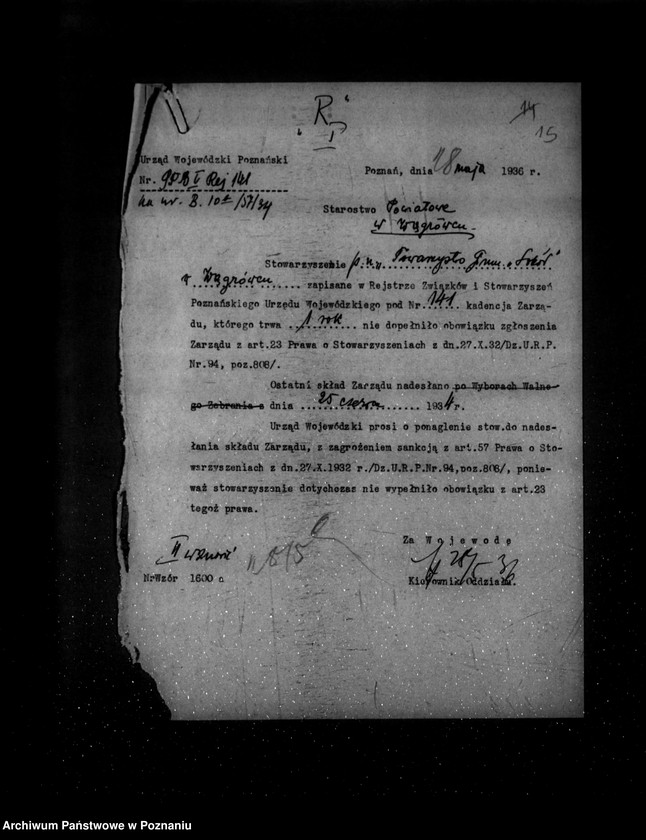 "R"
I
14
15
Urząd Wojewódzki Poznański
Poznań, dnia 18 maja 1936 r.
Nr.
Starostwo Powiatowe
w Wągrówcu
Stowarzyszenie p.n. Towarzystwo Gimn. "Sokół"
w Wągrówcu zapisane w Rejestrze Związków i Stowarzyszeń
Poznańskiego Urzędu Wojewódzkiego pod Nr. 141 kadencja Zarzą-
du, którego trwa 1 rok nie dopełniło obowiązku zgłoszenia
Zarządu z art.23 Prawa o Stowarzyszeniach z dn.27.X.32/Dz.U.R.P.
Nr.94, poz.808/.
Ostatni skład Zarządu nadesłano po Wyborach Walne-
go Zebrania z dnia 25 czerwca 1934 r.
Urząd Wojewódzki prosi o ponaglenie stow.do nades-
łania składu Zarządu, z zagrożeniem sankcją z art.57 Prawa o Sto-
warzyszeniach z dn.27.X.1932 r./Dz.U.R.P.Nr.94,poz.808/, ponie-
waż stowarzyszenie dotychczas nie wypełniło obowiązku z art.23
tegoż prawa.
Za Wojewodę
NrWzór 1600 a
Kierownik Oddziału.
Archiwum Państwowe w Poznaniu